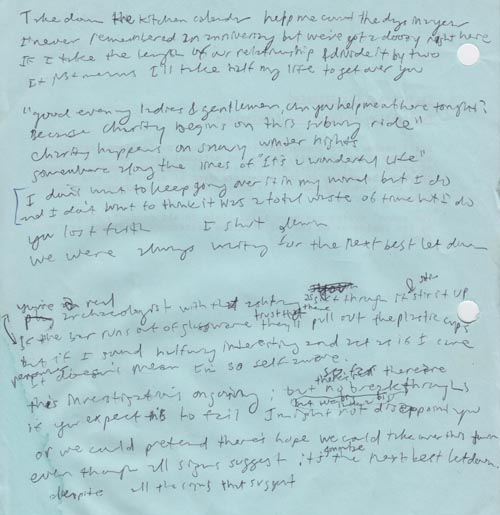 Take down the kitchen calendar help me count the days in tayer
I never remembered an anniversary but we've got a doozy right here
If I take the length of our relationship & divide it by two
It just means I'll take half my life to get over you
"good evening ladies & gentlemen, can you help me out here tonight?
Because charity begins on this subway ride"
charity happens on snowy winter nights
somewhere along the lines of "It's a wonderful Life"
I don't want to keep going over it in my mind but I do
and I don't want to think it was a total waste of time but I do
you lost faith I shut down
we were always waiting for the next best let down
you're a real
archaeologist with that ashtray sift through it stir it up
If the bar runs out of glassware trust that they'll pull out the plastic cups
but if I sound halfway interesting and act as if I care
it doesn't mean I'm so self aware.
so far there are
this investigation's ongoing; but no breakthroughs
if you expect this to fail I might not disappoint you
or we could pretend there's hope we could take one this
even though all signs suggest, it's the next best letdown
despite all the signs that suggest